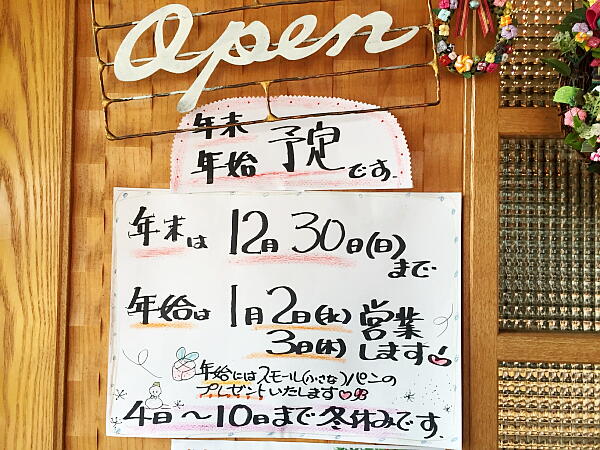 Open
年末
年始 予定です.
年末は 12月30日(日)
まで
年始は 1月2日(水) 営業
3日(木) します
年始にはスモール(小さな)パンの
プレゼントいたします
4日〜10日まで冬休みです.